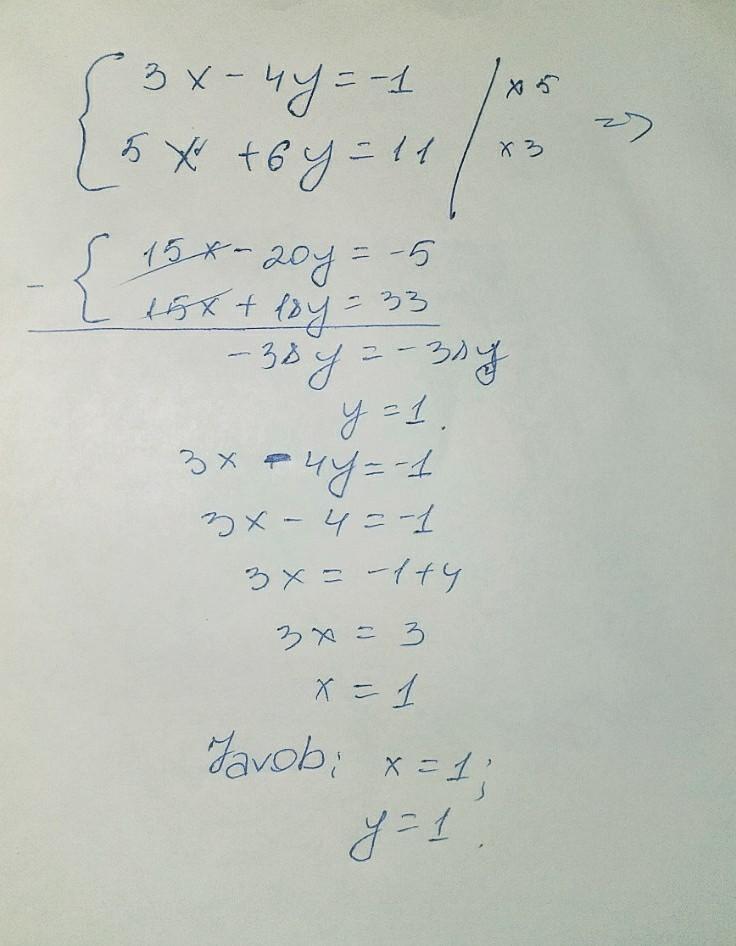 3x - 4y = -1 | x 5
5x + 6y = 11 | x 3 =>
15x - 20y = -5
- 15x + 18y = 33
-38y = -38y
y = 1.
3x - 4y = -1
3x - 4 = -1
3x = -1+4
3x = 3
x = 1
Javob; x = 1;
y = 1.